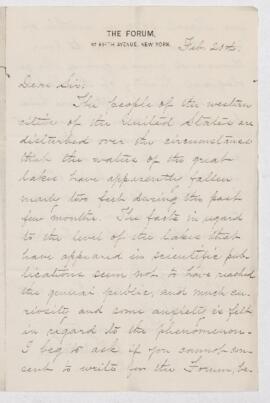 THE FORUM,
FIFTH AVENUE, NEW YORK.
Feb. 20th.
Dear Sir:
The people of the western
cities of the United States are
disturbed over the circumstance
that the water of the great
lakes have apparently fallen
nearly two feet during the past
few months. The facts in regard
to the level of the lakes that
have appeared in scientific pub-
lications seem not to have reached
the general public, and much cu-
riosity and some anxiety is felt
in regard to the phenomenon.
I beg to ask if you cannot con-
sent to write for the Forum, be-